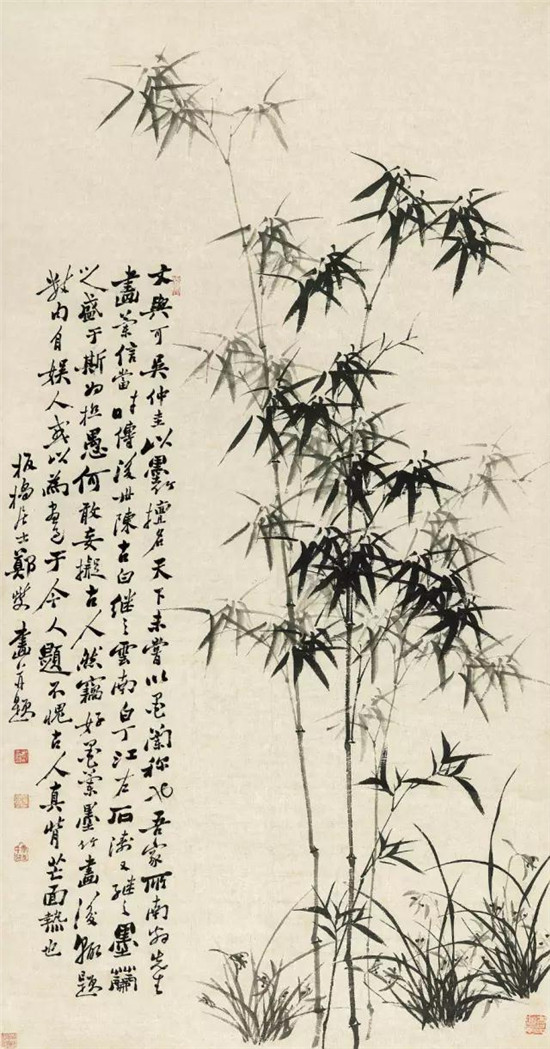 文與可吳仲圭以墨竹擅名天下未嘗以墨蘭稱也吾家所南翁先生
畫蘭信當時傳後世陳古白繼之雲南白丁江左石濤又繼之墨蘭
之盛于斯為極愚何敢妄擬古人然竊好墨蘭墨竹畫後輒題
數句自娛人或以為畫 于今人題不愧古人真背芒面熱也
板橋居士鄭燮畫并題